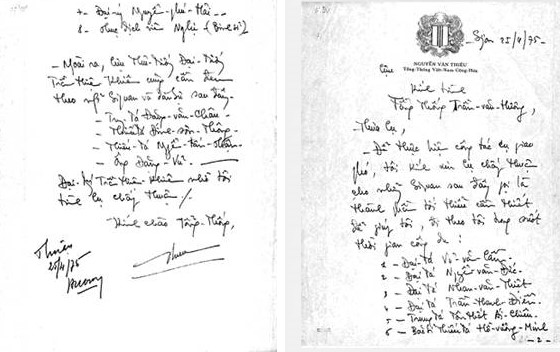 7 - Đại-úy Nguyễn-phú-Hải
8 - Phục dịch viên Nghị (Binh sĩ)
- Ngoài ra, Cựu Thủ-Tướng Đại-Tướng
Trần Thiện Khiêm cũng cần đem
theo một số Sĩ quan và Cán sự sau đây.
- Trung Tá Đặng-văn-Châu
- Thiếu Tá Đinh-sơn-Thông
- Thiếu-tá Nguyễn-tấn-
- Ông Đặng-Vũ.
Đại-tướng Trần Thiện Khiêm nhờ tôi
trình Cụ chấp thuận ./.
Kính chào Tổng-Thống,
Thiệu
25/4/75
Hương
NGUYỄN VĂN THIỆU
Tổng-Thống Việt-Nam Cộng-Hòa
Sgon 25/4/75
Kính trình
Tổng Thống Trần-văn-Hương,
Thưa Cụ,
- Để thực hiện công tác Cụ giao
phó, tôi kính xin Cụ chấp thuận
cho những Sĩ quan sau đây gọi là
thành phần tối thiểu cần thiết
để giúp tôi, đi theo tôi trong suốt
thời gian công du :
1 - Đại Tá Võ-văn-Cầm
2 - Đại Tá Nguyễn-văn-Đức
3 - Đại Tá Nhan-văn-Thiệt
4 - Đại Tá Trần-Thanh-Điền
5 - Trung Tá Tôn Thất Ái-Chiêu
6 - Bác sĩ Thiếu Tá Hồ-vương-Minh
- 2 -